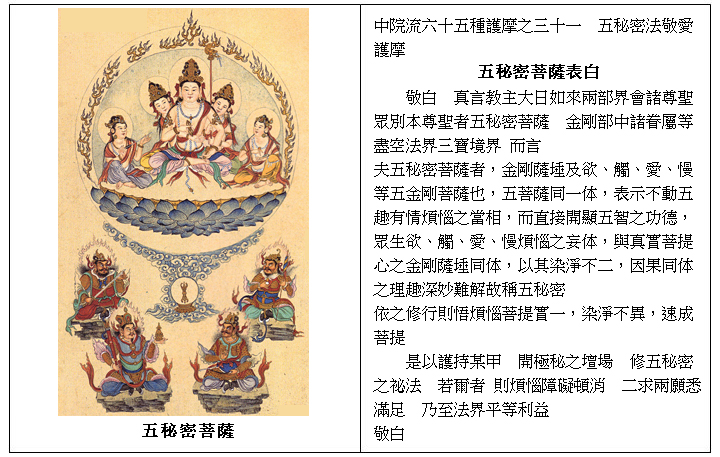 五秘密菩薩
中院流六十五種護摩之三十一　五秘密法敬愛
護摩
五秘密菩薩表白
敬白　真言教主大日如來兩部界會諸尊聖
眾別本尊聖者五秘密菩薩　金剛部中諸眷屬等
盡空法界三寶境界 而言
夫五秘密菩薩者，金剛薩埵及欲、觸、愛、慢
等五金剛菩薩也，五菩薩同一体，表示不動五
趣有情煩惱之當相，而直接開顯五智之功德，
眾生欲、觸、愛、慢煩惱之妄体，與真實菩提
心之金剛薩埵同体，以其染淨不二，因果同体
之理趣深妙難解故稱五秘密
依之修行則悟煩惱菩提實一，染淨不異，速成
菩提
是以護持某甲　開極秘之壇場　修五秘密
之祕法　若爾者 則煩惱障礙頓消　二求兩願悉
滿足　乃至法界平等利益
敬白